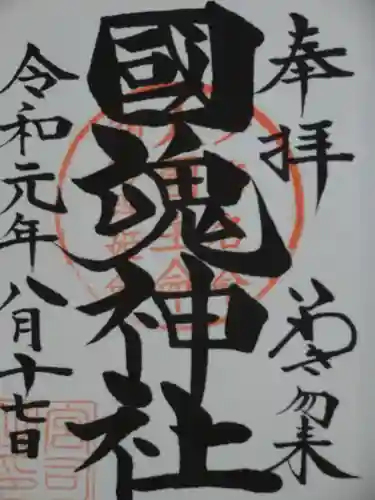 奉拝
いわき勿来
國魂神社
令和元年八月十七日
宮司